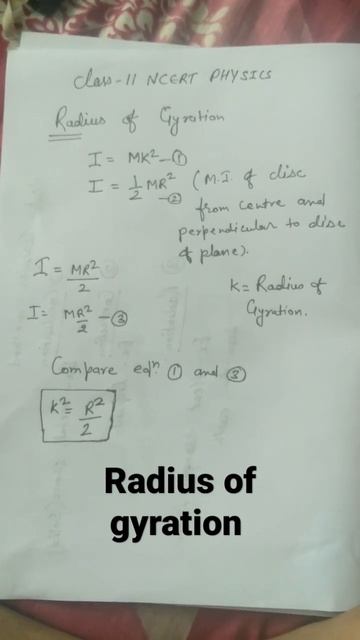 Class-11 NCERT PHYSICS
Radius of Gyration
I = MK² —①
I = 1/2 MR² —② (M.I. of disc
from centre and
perpendicular to disc
of plane).
I = MR²/2
K = Radius of
Gyration.
I = MR²/2 —③
Compare eqⁿ. ① and ③
K² = R²/2
Radius of
gyration